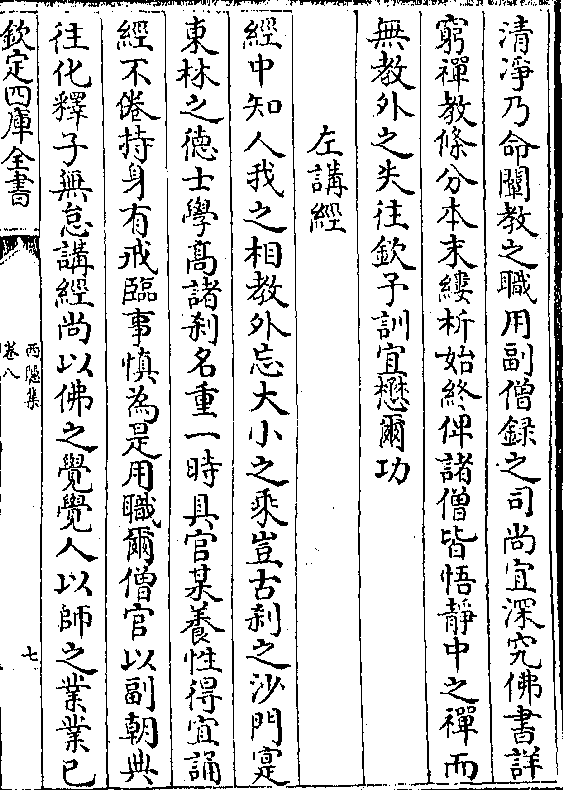 清凈乃命闡教之職用副僧録之司尚宜深究佛書詳
窮禪教條分本末縷析始終俾諸僧皆悟靜中之禪而
無教外之失往欽予訓宜懋爾功
左講經
經中知人我之相教外忘大小之乘豈古刹之沙門寔
東林之德士學髙諸刹名重一時具官某養性得宜誦
經不倦持身有戒臨事慎為是用職爾僧官以副朝典
往化釋子無怠講經尚以佛之覺覺人以師之業業已
欽定四庫全書
西隠集
卷八
七